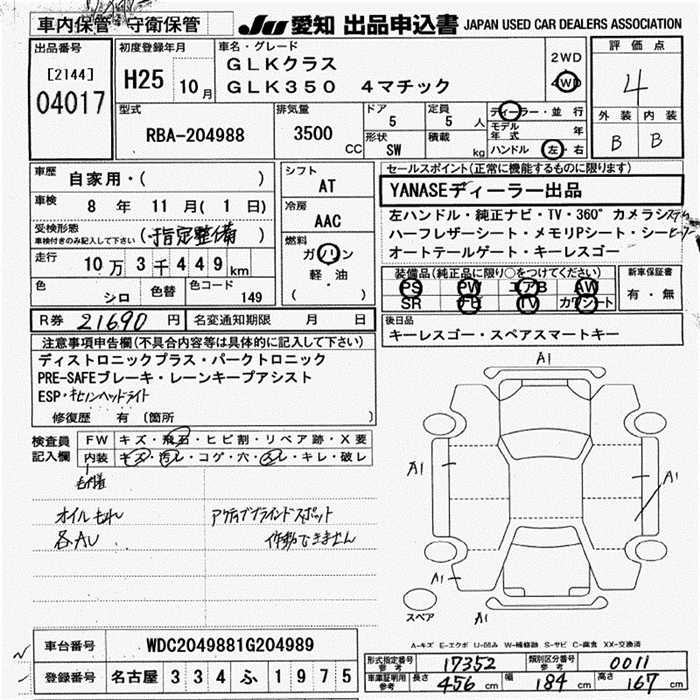 車内保管 守衛保管 JU 愛知 出品申込書 JAPAN USED CAR DEALERS ASSOCIATION
出品番号 初度登録年月 車名・グレード 評価点
[2144] H25 10月 GLKクラス 2WD
04017 GLK350 4マチック 4WD 4
型式 排気量 ドア 定員 ディーラー・並行 外装 内装
RBA-204988 3500 CC 5 5人 モデル年式 年 B B
形状 SW 積載 kg ハンドル 左・右
車歴 自家用・( ) シフト AT セールスポイント(正常に機能するものに限ります)
YANASEディーラー出品
車検 8年 11月( 1日) 冷房 AAC 左ハンドル・純正ナビ・TV・360°カメラシステム
受検形態 車検付きのみ記入して下さい (指定整備) ハーフレザーシート・メモリPシート・シートヒーター
燃料 ガソリン 軽・油 ( ) オートテールゲート・キーレスゴー
走行 10万3千449km 装備品(純正品に限り○をつけてください) 新車保証書
色 シロ 色替 色コード 149 PS PW エアB AW 有・無
SR ナビ TV カワシート
R券 21690円 名変通知期限 月 日 後日品
注意事項申告欄(不具合内容等は具体的に記入して下さい) キーレスゴー・スペアスマートキー
ディストロニックプラス・パークトロニック
PRE-SAFEブレーキ・レーンキープアシスト
ESP・キセノンヘッドライト
修復歴 有 (箇所
検査員記入欄 FW キズ・飛石・ヒビ割・リペア跡・X要
内装 キズ・汚レ・コゲ・穴・スレ・キレ・破レ
オイルもれ アクティブブラインドスポット
各AU 作動できません
A1
A1 A1
A1
A1 A1
スペア
A-キズ E-エクボ U-凹み W-補修跡 S-サビ C-腐食 XX-交換済
車台番号 WDC2049881G204989
登録番号 名古屋 334 ふ 1975
形式指定番号 参考 17352 類別区分番号 参考 0011
車庫証明用 参考 長さ 456cm 幅 184cm 高さ 167cm